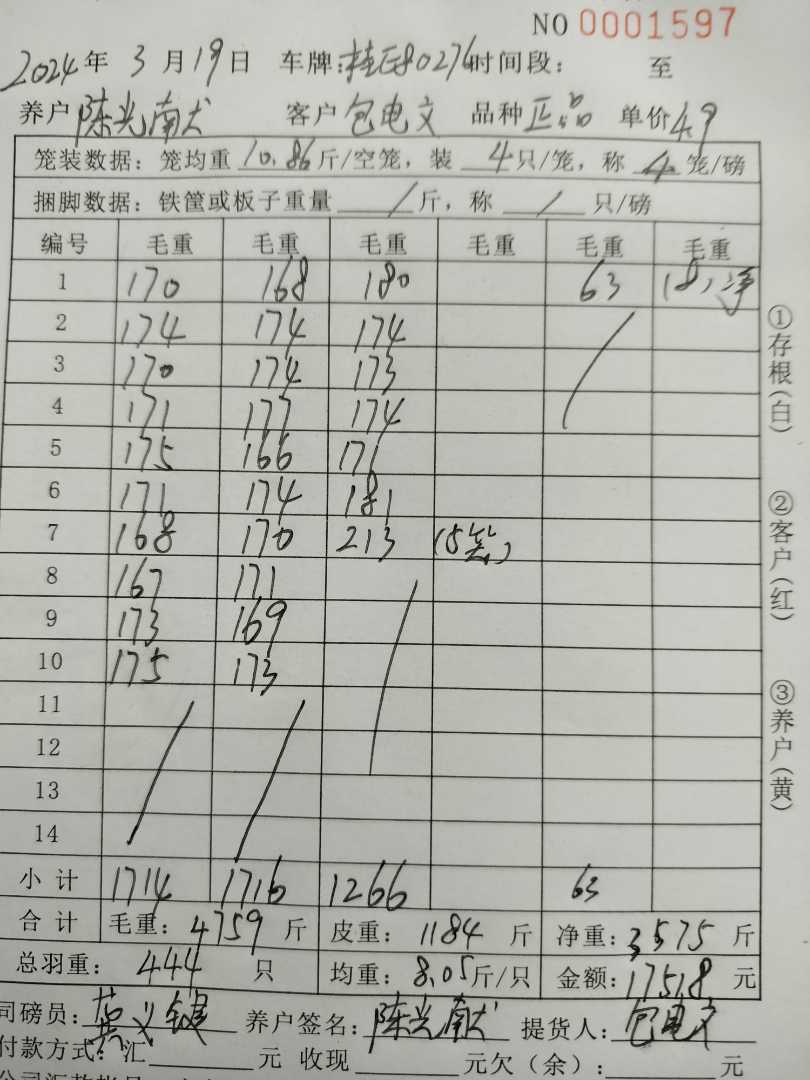 NO 0001597
2024年 3月19日 车牌:桂E80276时间段: 至
养户 陈光南 客户 包电文 品种 正品 单价4.9
笼装数据:笼均重 10.86斤/空笼,装 4只/笼,称 4笼/磅
捆脚数据:铁筐或板子重量 / 斤,称 / 只/磅
编号 毛重 毛重 毛重 毛重 毛重 毛重
1 170 168 180 63 18只净
2 174 174 174
3 170 174 173
4 171 177 174
5 175 166 171
6 171 174 181
7 168 170 213 (5笼)
8 167 171
9 173 169
10 175 173
11
12
13
14
小计 1714 1716 1266 63
合计 毛重:4759斤 皮重:1184斤 净重:3575斤
总羽重:444只 均重:8.05斤/只 金额:17518元
司磅员: 义 养户签名:陈光南 提货人:包电文
付款方式:汇 元 收现 元欠(余): 元
①存根(白)
②客户(红)
③养户(黄)